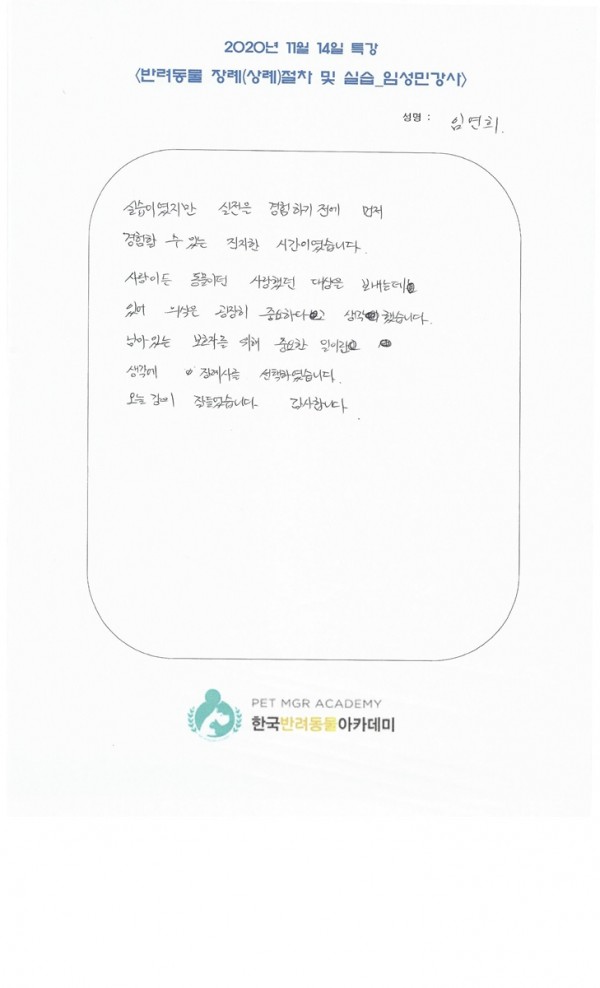 2020년 11월 14일 특강
<반려동물 장례(상례)절차 및 실습_임성민강사>
성명 : 임연희.
실습이였지만 실전은 경험하기 전에 먼저
경험할 수 있는 진지한 시간이였습니다.
사람이든 동물이던 사랑했던 대상을 보내는데
있어 의식은 굉장히 중요하다고 생각했습니다.
남아있는 보호자를 위해 중요한 일이란
생각에 장례사를 선택하였습니다.
오늘 강의 잘들었습니다. 감사합니다.
PET MGR ACADEMY
한국반려동물아카데미